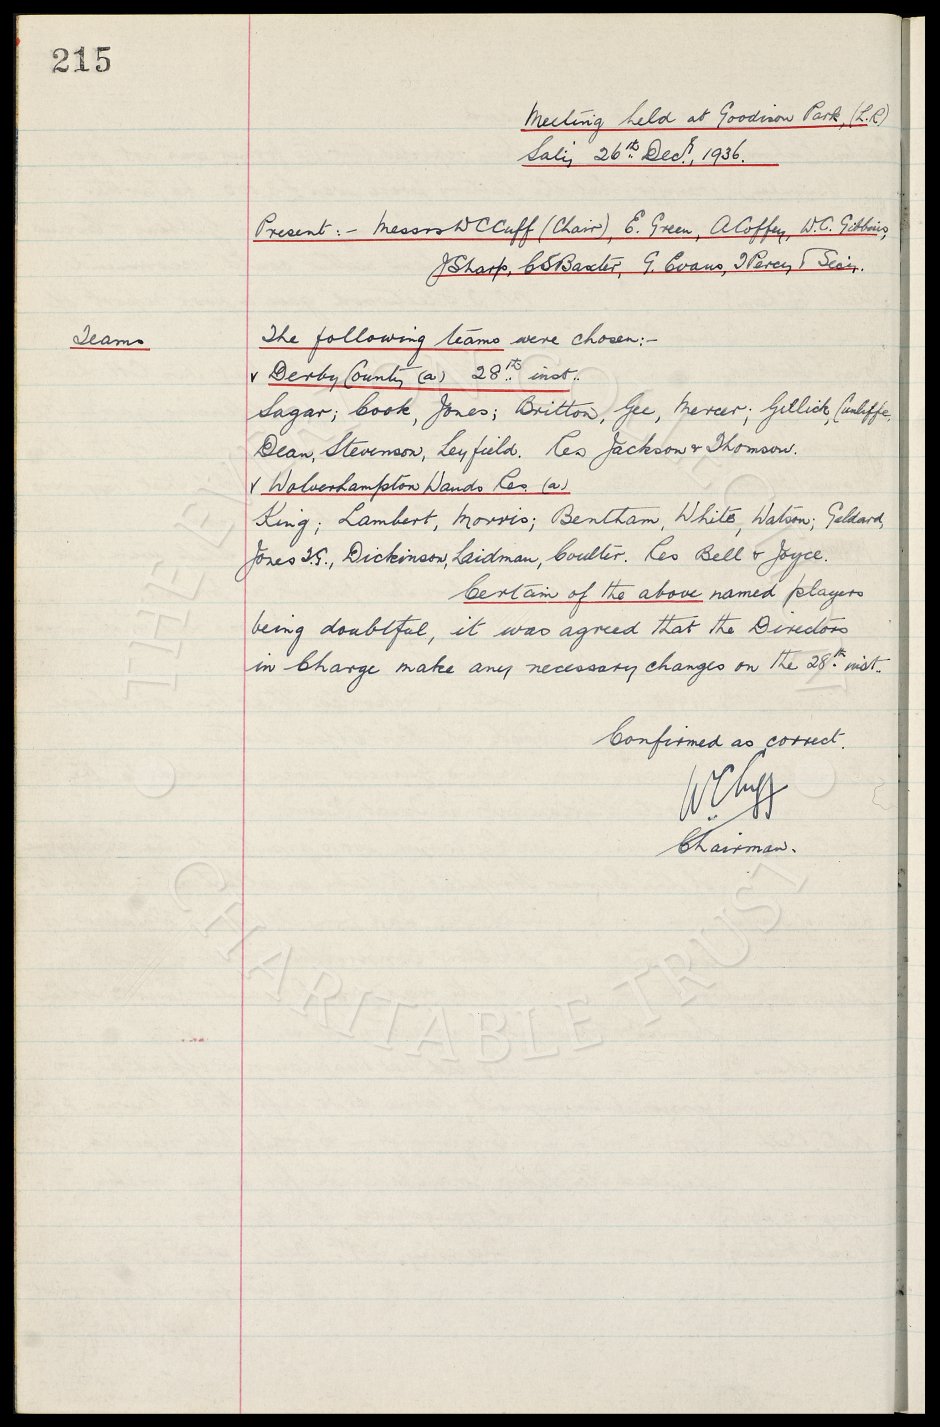 215
Meeting held at Goodison Park, (L.R)
Sat'y 26th Decr., 1936.
Present:- Messrs W C Cuff (Chair), E. Green, A Coffey, W.C. Gibbins,
J Sharp, C S Baxter, G. Evans, T Percy & Sec'y.
Teams
The following teams were chosen:-
v Derby County (a) 28th inst.
Sagar; Cook, Jones; Britton, Gee, Mercer; Gillick, Cunliffe,
Dean, Stevenson, Leyfield. Res Jackson & Thomson.
v Wolverhampton Wands Res. (a)
King; Lambert, Morris; Bentham, White, Watson; Geldard,
Jones T.G., Dickinson, Laidman, Coulter. Res Bell & Joyce.
Certain of the above named players
being doubtful, it was agreed that the Directors
in Charge make any necessary changes on the 28th inst.
Confirmed as correct.
W C Cuff
Chairman.
THE EVERTON COLLECTION
CHARITABLE TRUST